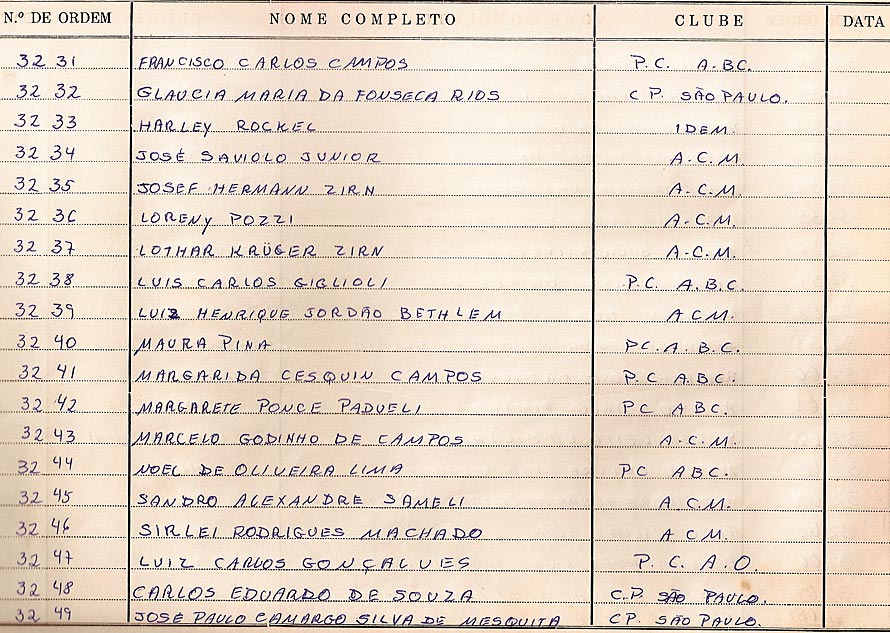 N.º DE ORDEM NOME COMPLETO CLUBE DATA
32 31 FRANCISCO CARLOS CAMPOS P.C. A.BC.
32 32 GLAUCIA MARIA DA FONSECA RIOS C P. SÃO PAULO.
32 33 HARLEY ROCKEL IDEM.
32 34 JOSÉ SAVIOLO JUNIOR A.C.M.
32 35 JOSEF HERMANN ZIRN A.C.M.
32 36 LORENY POZZI A.C.M.
32 37 LOTHAR KRÜGER ZIRN A.C.M.
32 38 LUIS CARLOS GIGLIOLI P.C. A.B.C.
32 39 LUIZ HENRIQUE JORDÃO BETHLEM A C M.
32 40 MAURA PINA PC.A.B.C.
32 41 MARGARIDA CESQUIN CAMPOS P.C ABC.
32 42 MARGARETE PONCE PADUELI PC ABC.
32 43 MARCELO GODINHO DE CAMPOS A.C.M.
32 44 NOEL DE OLIVEIRA LIMA PC ABC.
32 45 SANDRO ALEXANDRE SAMELI A C.M.
32 46 SIRLEI RODRIGUES MACHADO A C M.
32 47 LUIZ CARLOS GONÇALVES P. C. A. O.
32 48 CARLOS EDUARDO DE SOUZA C.P. SÃO PAULO.
32 49 JOSÉ PAULO CAMARGO SILVA DE MESQUITA CP. SÃO PAULO.